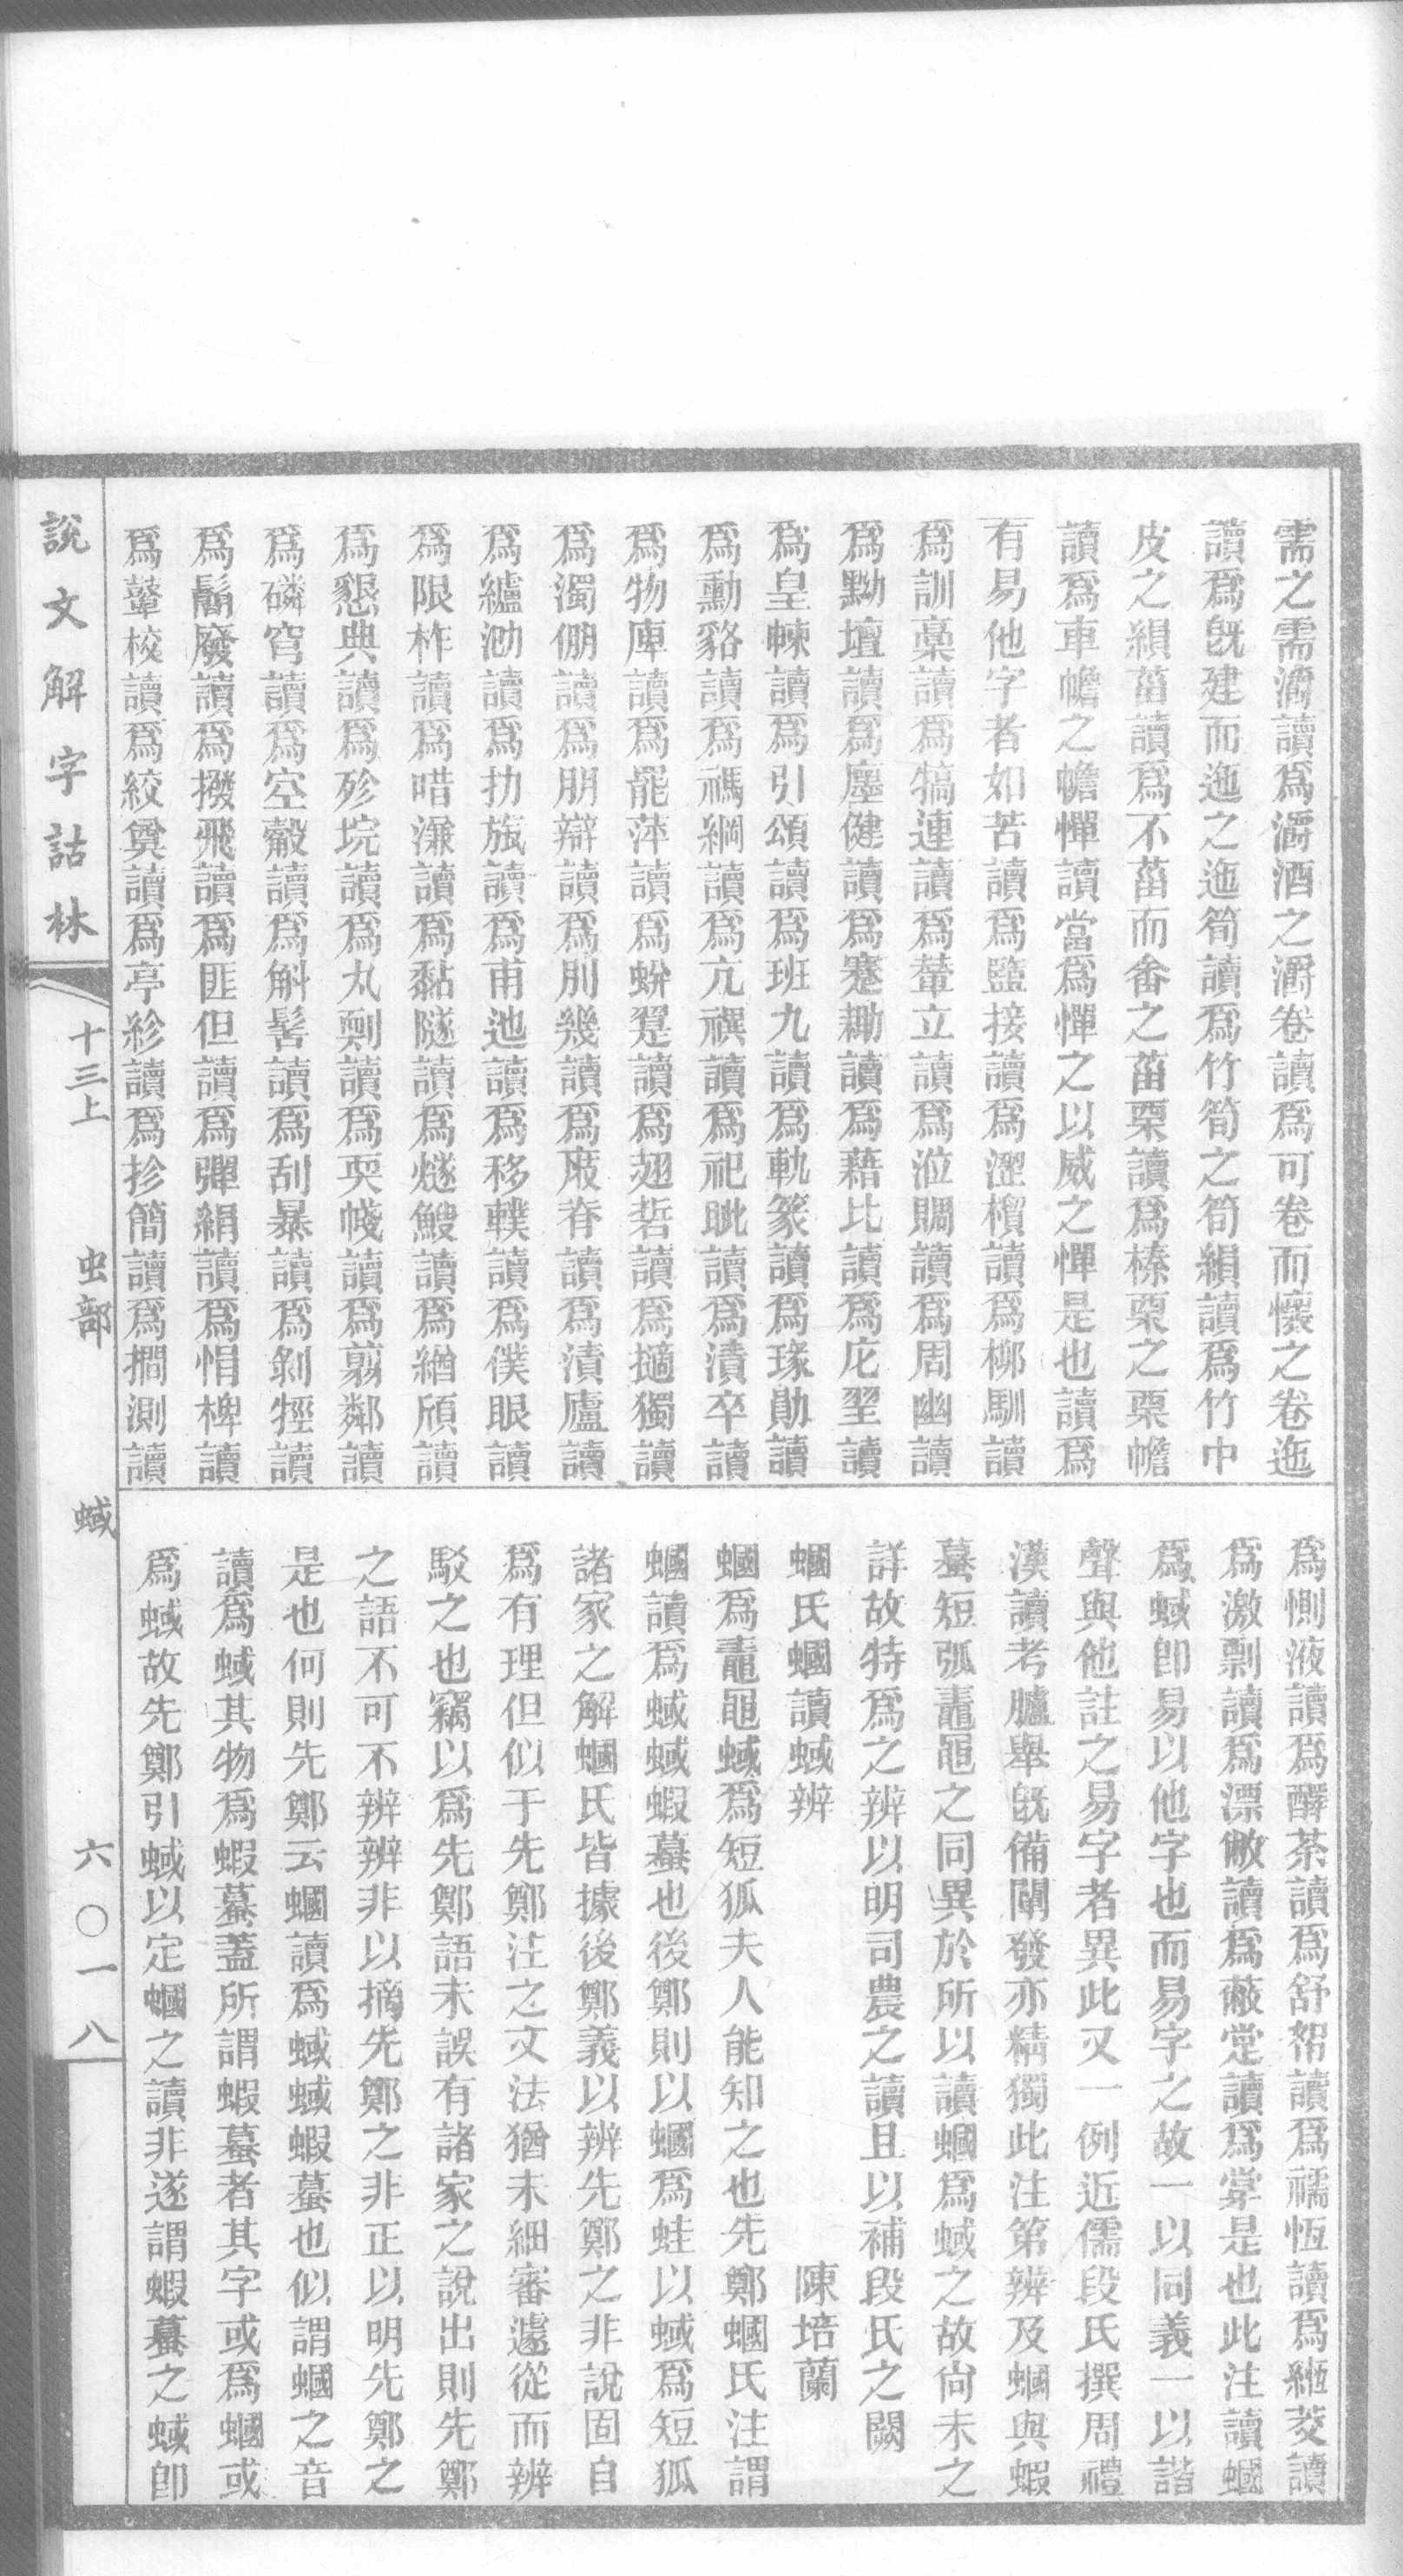 需之需灂讀爲灂酒之灂卷讀爲可卷而懷之卷迆
讀爲旣建而迆之迆筍讀爲竹筍之筍緷讀爲竹中
皮之緷菑讀爲不菑而畬之菑栗讀爲榛栗之栗幨
讀爲車幨之幨憚讀當爲憚之以威之憚是也讀爲
有易他字者如苦讀爲盬接讀爲澀檟讀爲柳馴讀
爲訓稾讀爲犒連讀爲輦立讀爲涖賙讀爲周幽讀
爲黝壇讀爲廛健讀爲蹇耡讀爲藉比讀爲庀堊讀
爲皇朄讀爲引頒讀爲班九讀爲軌篆讀爲瑑勛讀
爲勳貉讀爲禡綱讀爲亢禩讀爲祀眦讀爲漬卒讀
爲物庳讀爲罷萍讀爲蛢翨讀爲翅硩讀爲擿獨讀
爲濁倗讀爲朋辯讀爲別幾讀爲庪脊讀爲漬廬讀
爲纑泐讀爲扐旊讀爲甫迆讀爲移轐讀爲僕眼讀
爲限柞讀爲唶溓讀爲黏隧讀爲燧鰒讀爲緧頎讀
爲懇典讀爲殄垸讀爲丸剸讀爲耎帴讀爲翦鄰讀
爲磷穹讀爲空觳讀爲斛髺讀爲刮暴讀爲剝牼讀
爲鬜廢讀爲撥飛讀爲匪但讀爲彈絹讀爲悁椑讀
爲鼙校讀爲絞奠讀爲亭紾讀爲抮簡讀爲撊測讀
爲惻液讀爲醳荼讀爲舒帤讀爲襦恆讀爲緪茭讀
爲激剽讀爲漂敝讀爲蔽定讀爲掌是也此注讀蟈
爲蜮卽易以他字也而易字之故一以同義一以諧
聲與他註之易字者異此又一例近儒段氏撰周禮
漢讀考臚舉旣備闡發亦精獨此注第辨及蟈與蝦
蟇短弧鼃黽之同異於所以讀蟈爲蜮之故尙未之
詳故特爲之辨以明司農之讀且以補段氏之闕
蟈氏蟈讀蜮辨　陳培蘭
蟈爲鼃黽蜮爲短狐夫人能知之也先鄭蟈氏注謂
蟈讀爲蜮蜮蝦蟇也後鄭則以蟈爲蛙以蜮爲短狐
諸家之解蟈氏皆據後鄭義以辨先鄭之非說固自
爲有理但似于先鄭注之文法猶未細審遽從而辨
駁之也竊以爲先鄭語未誤有諸家之說出則先鄭
之語不可不辨辨非以摘先鄭之非正以明先鄭之
是也何則先鄭云蟈讀爲蜮蜮蝦蟇也似謂蟈之音
讀爲蜮其物爲蝦蟇蓋所謂蝦蟇者其字或爲蟈或
爲蜮故先鄭引蜮以定蟈之讀非遂謂蝦蟇之蜮卽
說文解字詁林　十三上　虫部　蜮　六〇一八